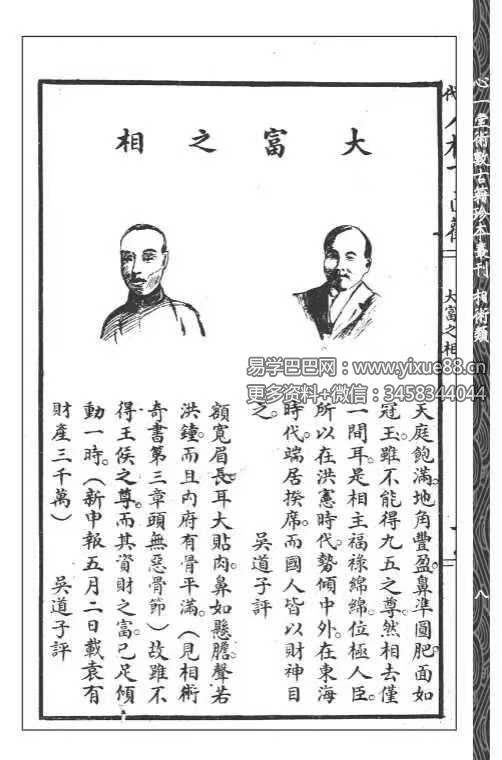 心一堂術數古籍珍本叢刊 相術類
八
大富之相
大富之相
天庭飽滿。地角豐盈。鼻準圓肥。面如
冠玉。雖不能得九五之尊。然相去僅
一間耳。是相主福祿綿綿。位極人臣。
所以在洪憲時代。勢傾中外。在東海
時代。端居揆席。而國人皆以財神目
之。 吳道子評
額寬眉長。耳大貼肉。鼻如懸膽。聲若
洪鐘。而且內府有骨平滿。（見相術
奇書第三章頭無惡骨節）故雖不
得王侯之尊。而其資財之富。已足傾
動一時。（新申報五月二日載袁有
財產三千萬） 吳道子評
易学巴巴网：www.yixue88.cn
更多资料+微信：3458344044